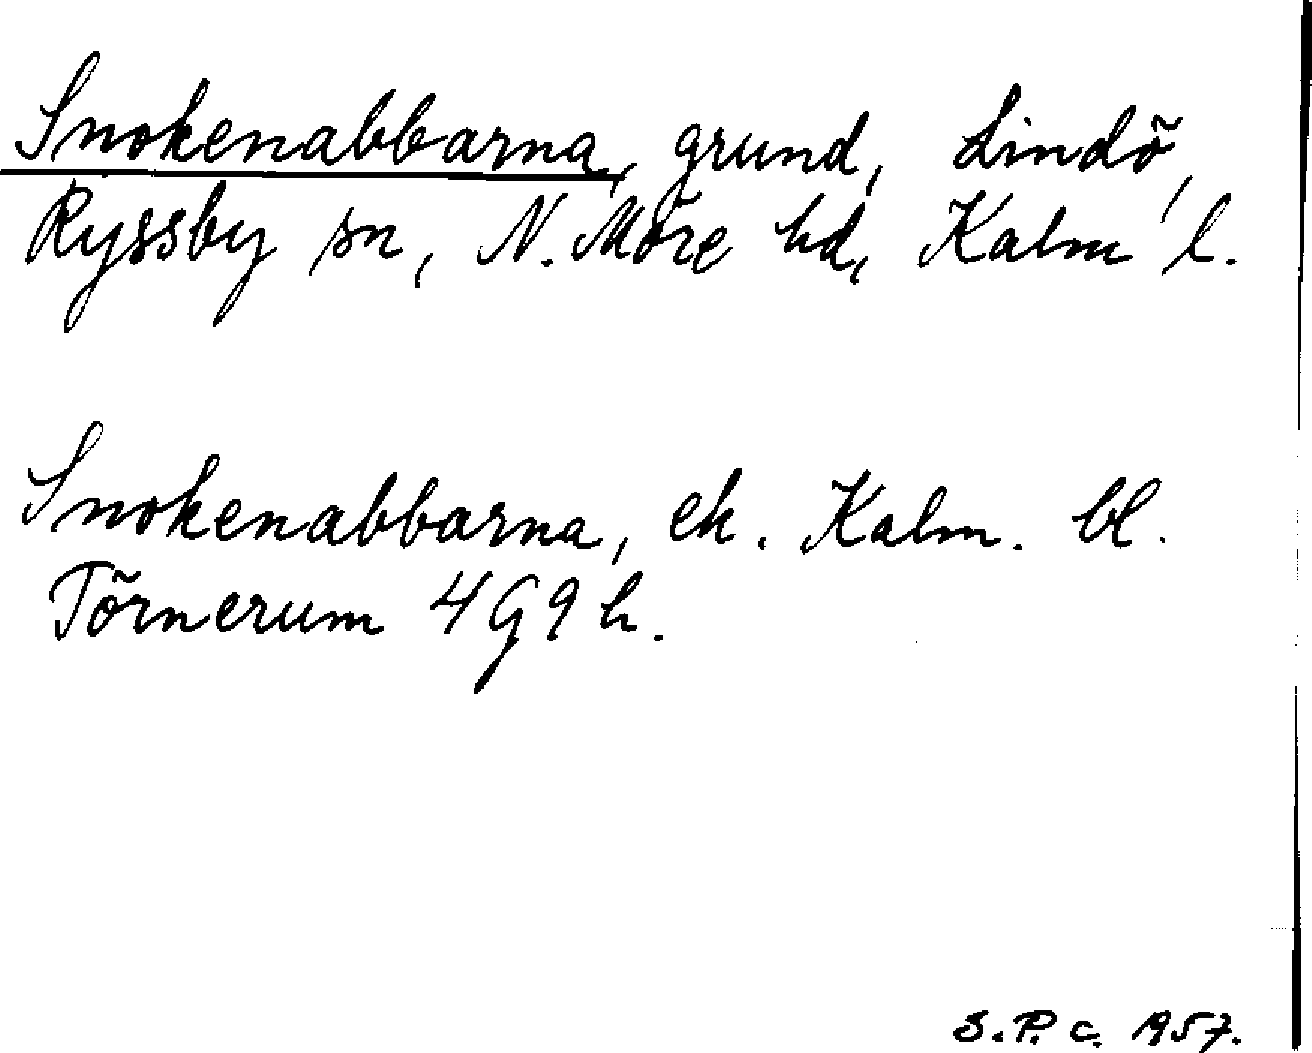 Snokenabbarna, grund, Lindö,
Ryssby sn, N. Möre hd, Kalm l.
Snokenabbarna, ek. Kalm. bl.
Törnerum 4G9h.
S.P. c. 1957.